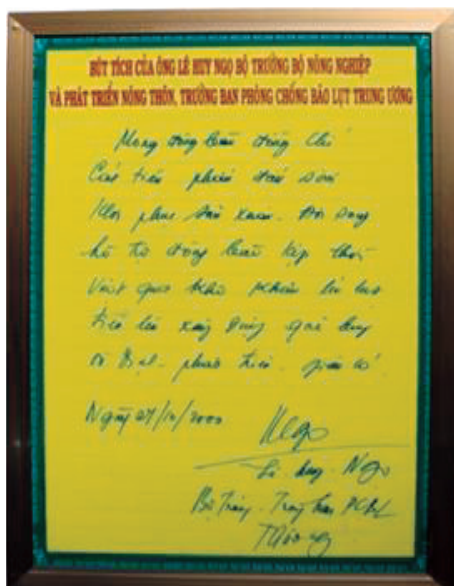 BÚT TÍCH CỦA ÔNG LÊ HUY NGỌ BỘ TRƯỞNG BỘ NÔNG NGHIỆP
VÀ PHÁT TRIỂN NÔNG THÔN, TRƯỞNG BAN PHÒNG CHỐNG BÃO LỤT TRUNG ƯƠNG
Mong đồng bào đồng chí
phấn đấu sớm
Khôi phục sản xuất. Đời sống
hỗ trợ đồng bào kịp thời
Vượt qua khó khăn lũ lụt
xây dựng quê
phát triển. giàu có
Ngày 27/12/2000
Lê Huy Ngọ
Bộ Trưởng. Trưởng ban PCBL